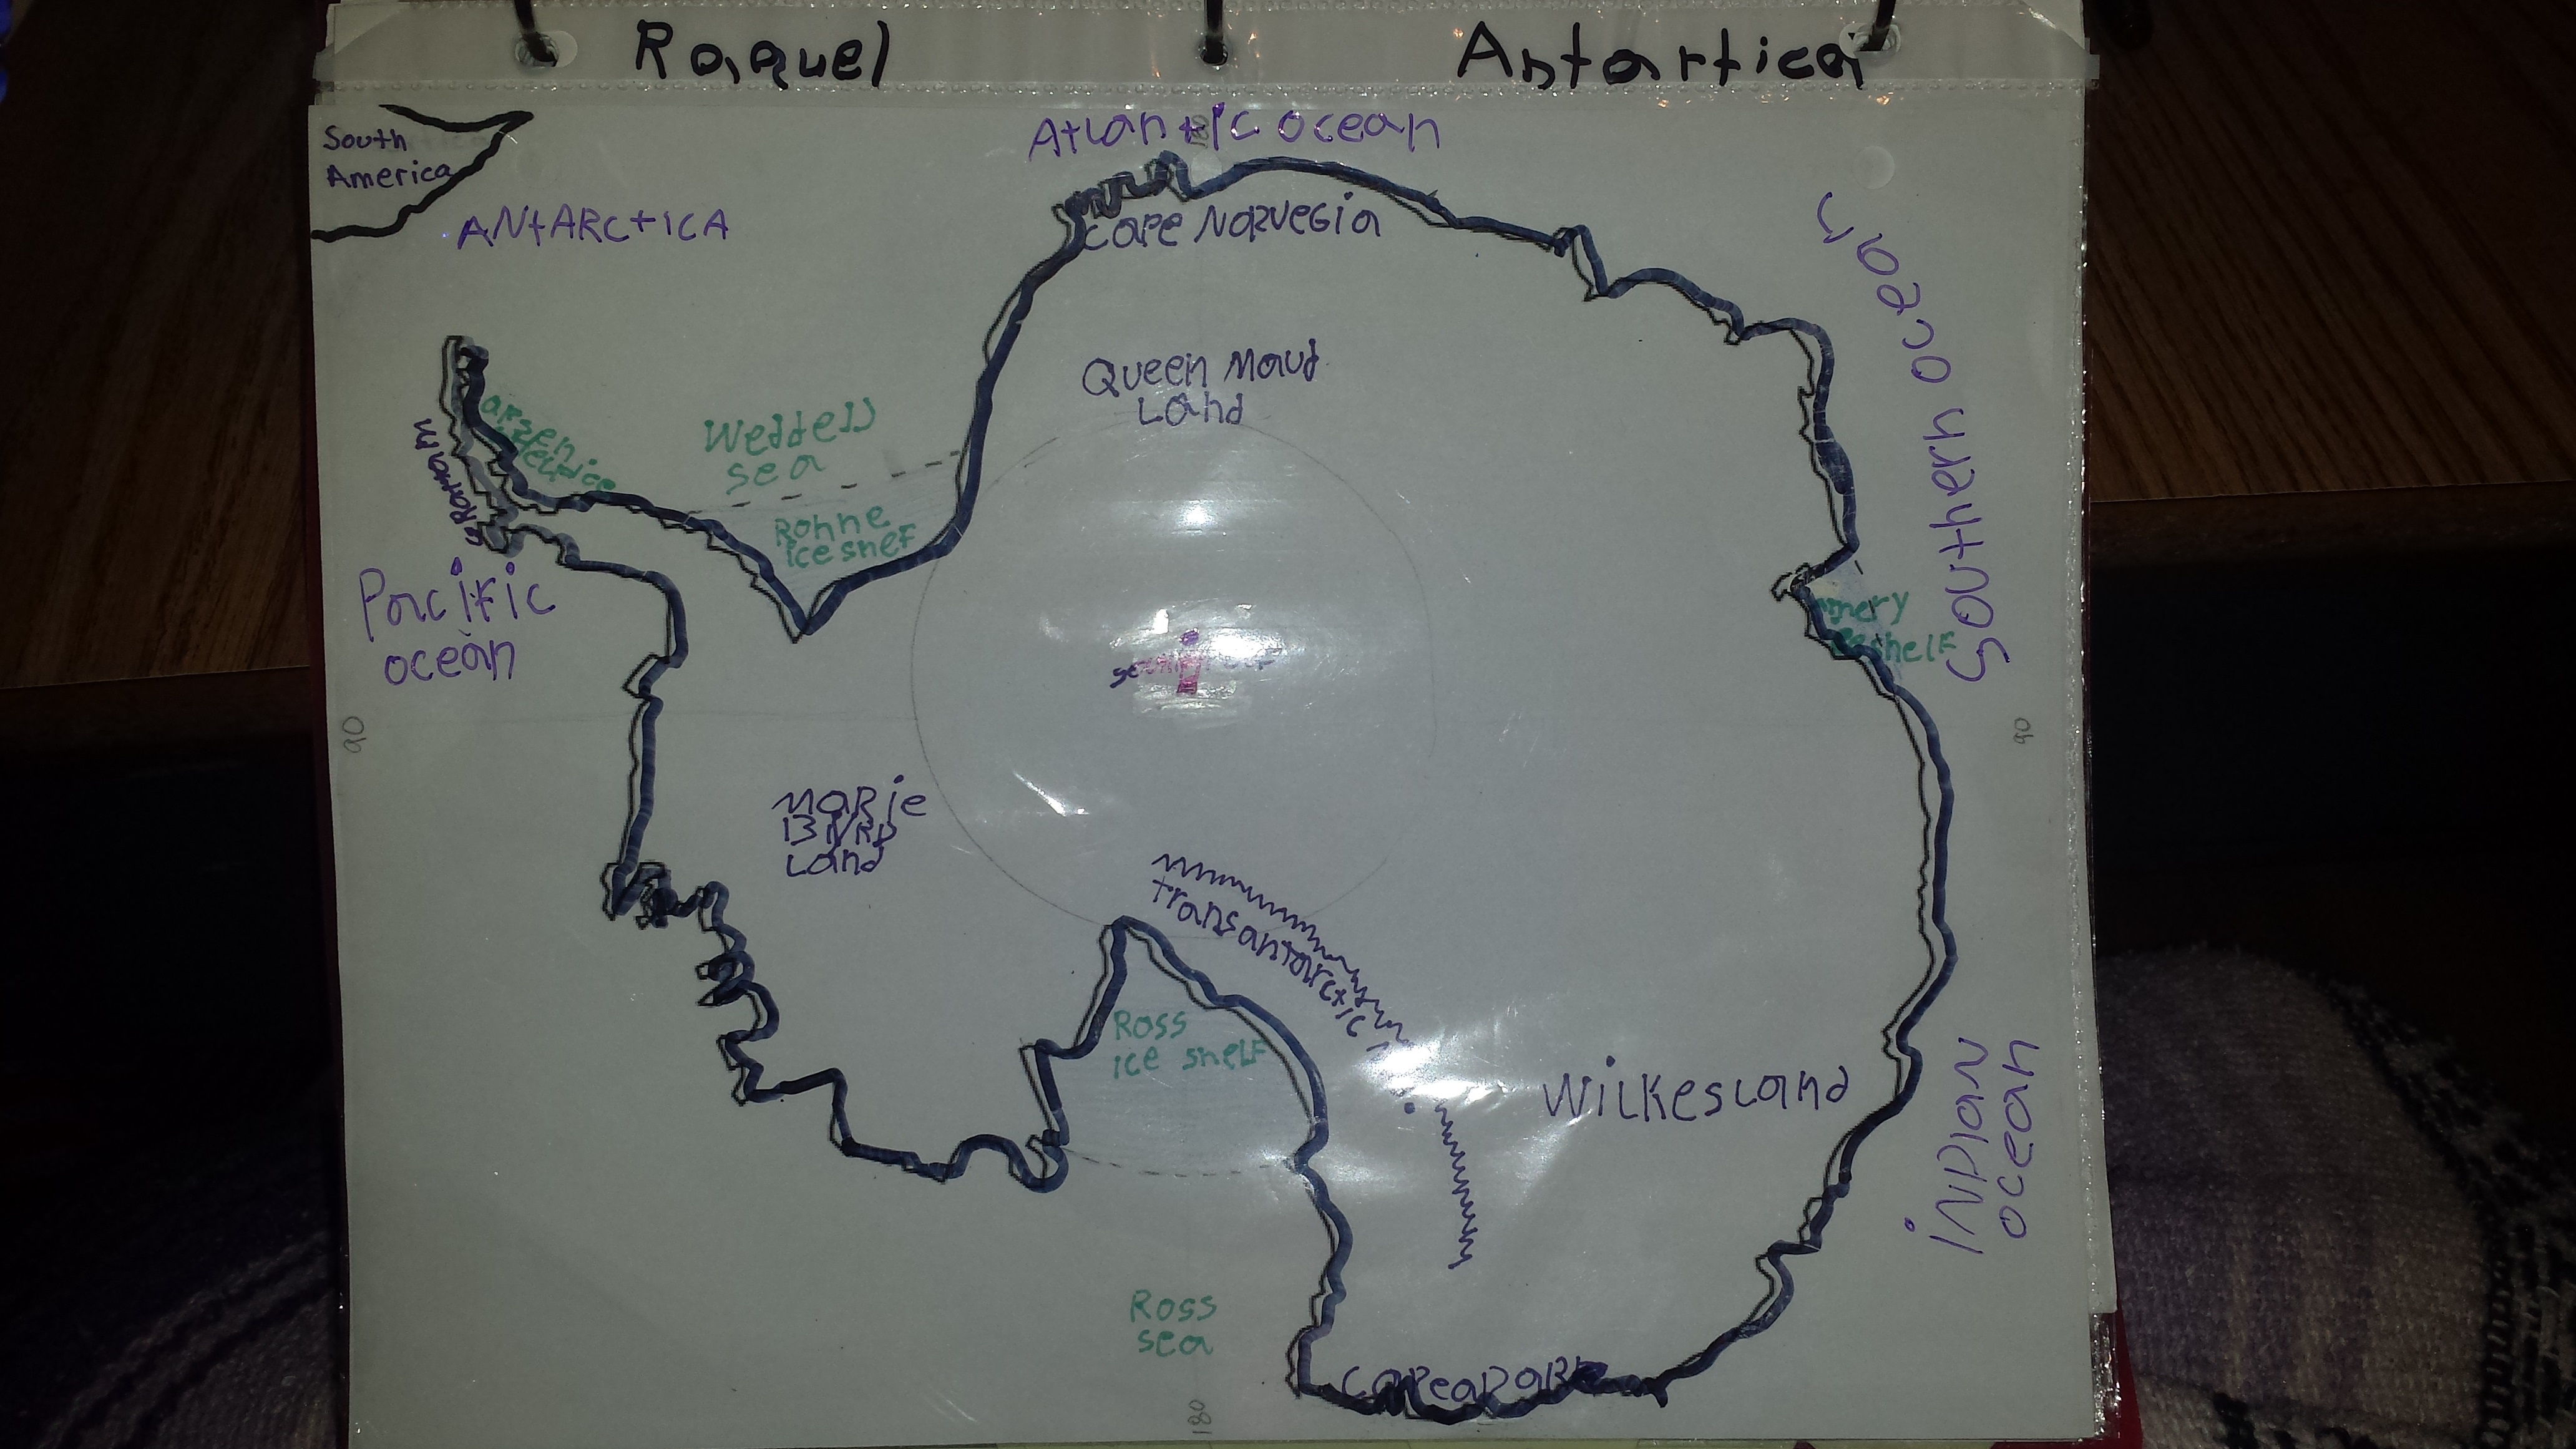 Raquel
Antartica
South
America
ANtARCtICA
Atlantic ocean
cape Norvegia
Southern ocean
Queen Maud
Land
Weddell
sea
Ronne
ice shelf
Pacific
ocean
shelf
90
90
MaRie
BYRD
Land
transantarctic
Ross
ice shelf
WilkesLand
INDian
ocean
Ross
sea
180